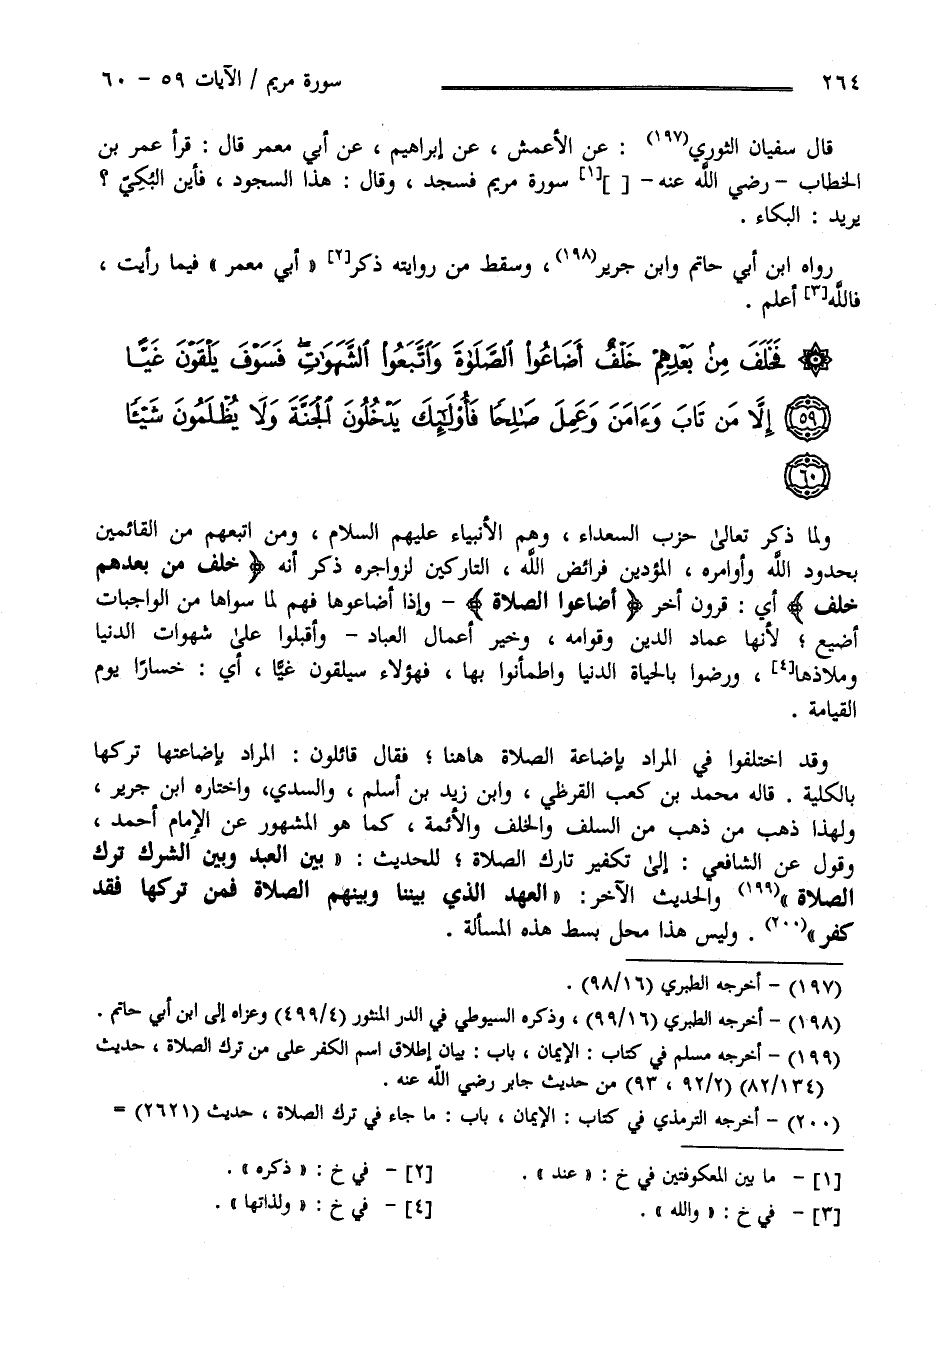 ٢٦٤ سورة مريم / الآيات ٥٩ - ٦٠
قال سفيان الثوري(١٩٧) : عن الأعمش ، عن إبراهيم ، عن أبي معمر قال : قرأ عمر بن
الخطاب - رضي اللَّه عنه - [ ][١] سورة مريم فسجد ، وقال : هذا السجود ، فأين البُكِيّ ؟
يريد : البكاء .
رواه ابن أبي حاتم وابن جرير(١٩٨) ، وسقط من روايته ذكر[٢] « أبي معمر » فيما رأيت ،
فاللَّه[٣] أعلم .
۞ فَخَلَفَ مِنۢ بَعْدِهِمْ خَلْفٌ أَضَاعُوا۟ ٱلصَّلَوٰةَ وَٱتَّبَعُوا۟ ٱلشَّهَوَٰتِ ۖ فَسَوْفَ يَلْقَوْنَ غَيًّا
٥٩ إِلَّا مَن تَابَ وَءَامَنَ وَعَمِلَ صَٰلِحًا فَأُو۟لَٰٓئِكَ يَدْخُلُونَ ٱلْجَنَّةَ وَلَا يُظْلَمُونَ شَيْـًٔا
٦٠
ولما ذكر تعالىٰ حزب السعداء ، وهم الأنبياء عليهم السلام ، ومن اتبعهم من القائمين
بحدود اللَّه وأوامره ، المؤدين فرائض اللَّه ، التاركين لزواجره ذكر أنه ﴿ خلف من بعدهم
خلف ﴾ أي : قرون أخر ﴿ أضاعوا الصلاة ﴾ - وإذا أضاعوها فهم لما سواها من الواجبات
أضيع ؛ لأنها عماد الدين وقوامه ، وخير أعمال العباد - وأقبلوا علىٰ شهوات الدنيا
وملاذها[٤] ، ورضوا بالحياة الدنيا واطمأنوا بها ، فهؤلاء سيلقون غيًّا ، أي : خسارًا يوم
القيامة .
وقد اختلفوا في المراد بإضاعة الصلاة هاهنا ؛ فقال قائلون : المراد بإضاعتها تركها
بالكلية . قاله محمد بن كعب القرظي ، وابن زيد بن أسلم ، والسدي، واختاره ابن جرير ،
ولهذا ذهب من ذهب من السلف والخلف والأئمة ، كما هو المشهور عن الإمام أحمد ،
وقول عن الشافعي : إلىٰ تكفير تارك الصلاة ؛ للحديث : « بين العبد وبين الشرك ترك
الصلاة »(١٩٩) والحديث الآخر: «العهد الذي بيننا وبينهم الصلاة فمن تركها فقد
كفر»(٢٠٠) . وليس هذا محل بسط هذه المسألة .
(١٩٧) - أخرجه الطبري (٩٨/١٦) .
(١٩٨) - أخرجه الطبري (٩٩/١٦) ، وذكره السيوطي في الدر المنثور (٤٩٩/٤) وعزاه إلى ابن أبي حاتم .
(١٩٩) - أخرجه مسلم في كتاب : الإيمان ، باب : بيان إطلاق اسم الكفر على من ترك الصلاة ، حديث
(٨٢/١٣٤) (٩٢/٢ ، ٩٣) من حديث جابر رضي اللَّه عنه .
(٢٠٠) - أخرجه الترمذي في كتاب : الإيمان ، باب : ما جاء في ترك الصلاة ، حديث (٢٦٢١) =
[١] - ما بين المعكوفتين في خ : « عند » . [٢] - في خ : « ذكره » .
[٣] - في خ : « والله » . [٤] - في خ : « ولذاتها » .